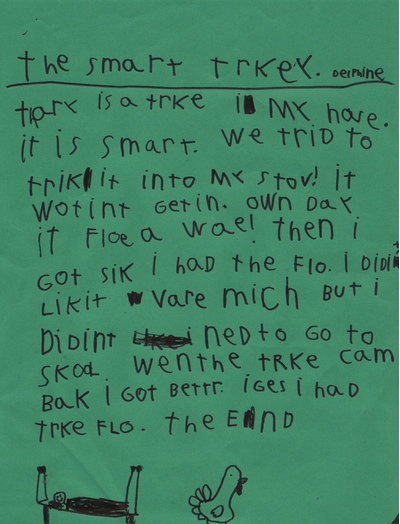 the smart trkey. Delphine
thark is a trke in my haose.
it is smart. we trid to
trik it into my stov! it
wotint get in. own day
it floe a wae! then i
got sik i had the flo. i didint
likit vare mich but i
didint ned to go to
skool. wen the trke cam
bak i got bettr. i ges i had
trke flo. the End